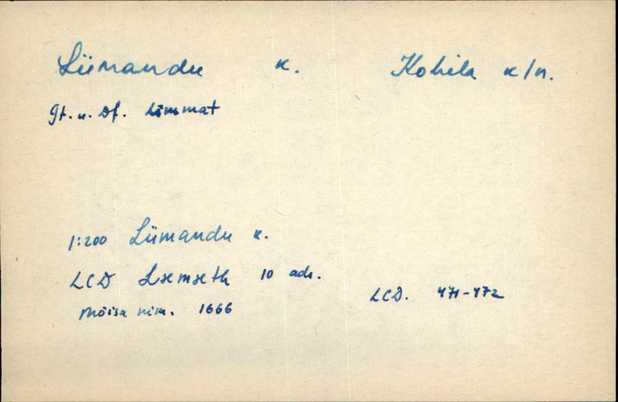 Liimandu k. Kohila k/n.
gt. u. Df. Limmat
1:200 Liimandu k.
LCD Læmæth 10 adr.
Mõisa nim. 1666
LCD. 471-472